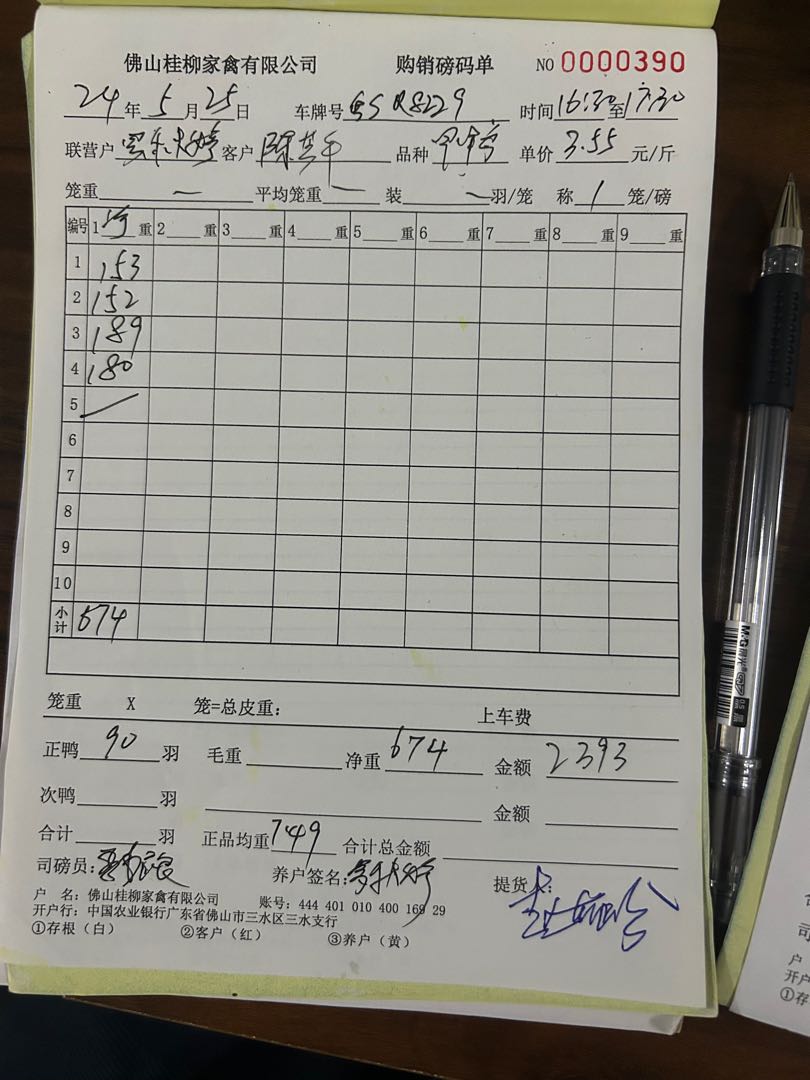 佛山桂柳家禽有限公司 购销磅码单 NO 0000390
24年5月25日 车牌号 R8229 时间16:30至17:30
联营户 客户 品种 单价3.55元/斤
笼重 — 平均笼重 — 装 — 羽/笼 称 1 笼/磅
编号 1 重 2 重 3 重 4 重 5 重 6 重 7 重 8 重 9 重
1 153
2 152
3 189
4 180
5
6
7
8
9
10
小计 674
笼重 X 笼=总皮重: 上车费
正鸭 90 羽 毛重 净重 674 金额 2393
次鸭 羽 金额
合计 羽 正品均重 749 合计总金额
司磅员: 养户签名: 提货人:
户 名: 佛山桂柳家禽有限公司 账号: 444 401 010 400 169 29
开户行: 中国农业银行广东省佛山市三水区三水支行
①存根(白) ②客户(红) ③养户(黄)
M&G 晨光
0.5
司
户
开户
①存